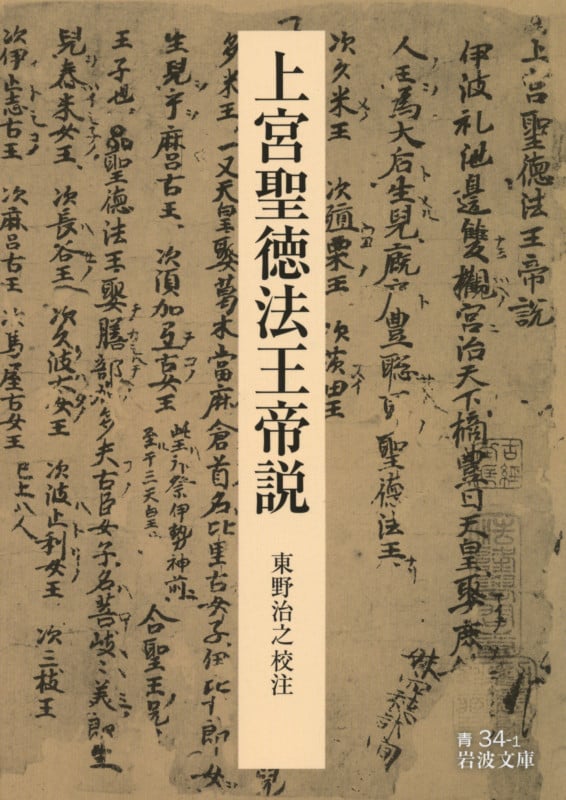 上宮聖徳法王帝説
東野治之校注
青 34-1
岩波文庫
上宮聖徳法王帝説
伊波礼池邊雙欟宮治天下橘豊日天皇娶庶
人王為大后生兒厩戸豊聡耳聖徳法王
次久米王 次殖栗王 次茨田王
多米王 又天皇娶葛木當麻倉首名比里古女子伊比古郎女
生兒乎麻呂古王 次須加弖古女王
王子也 聖徳法王娶膳部加多夫古臣女子名菩岐々美郎女生
兒舂米女王 次長谷王 次久波太女王 次波止利女王 次三枝王
次伊止志古王 次麻呂古王 次馬屋古女王 已上八人